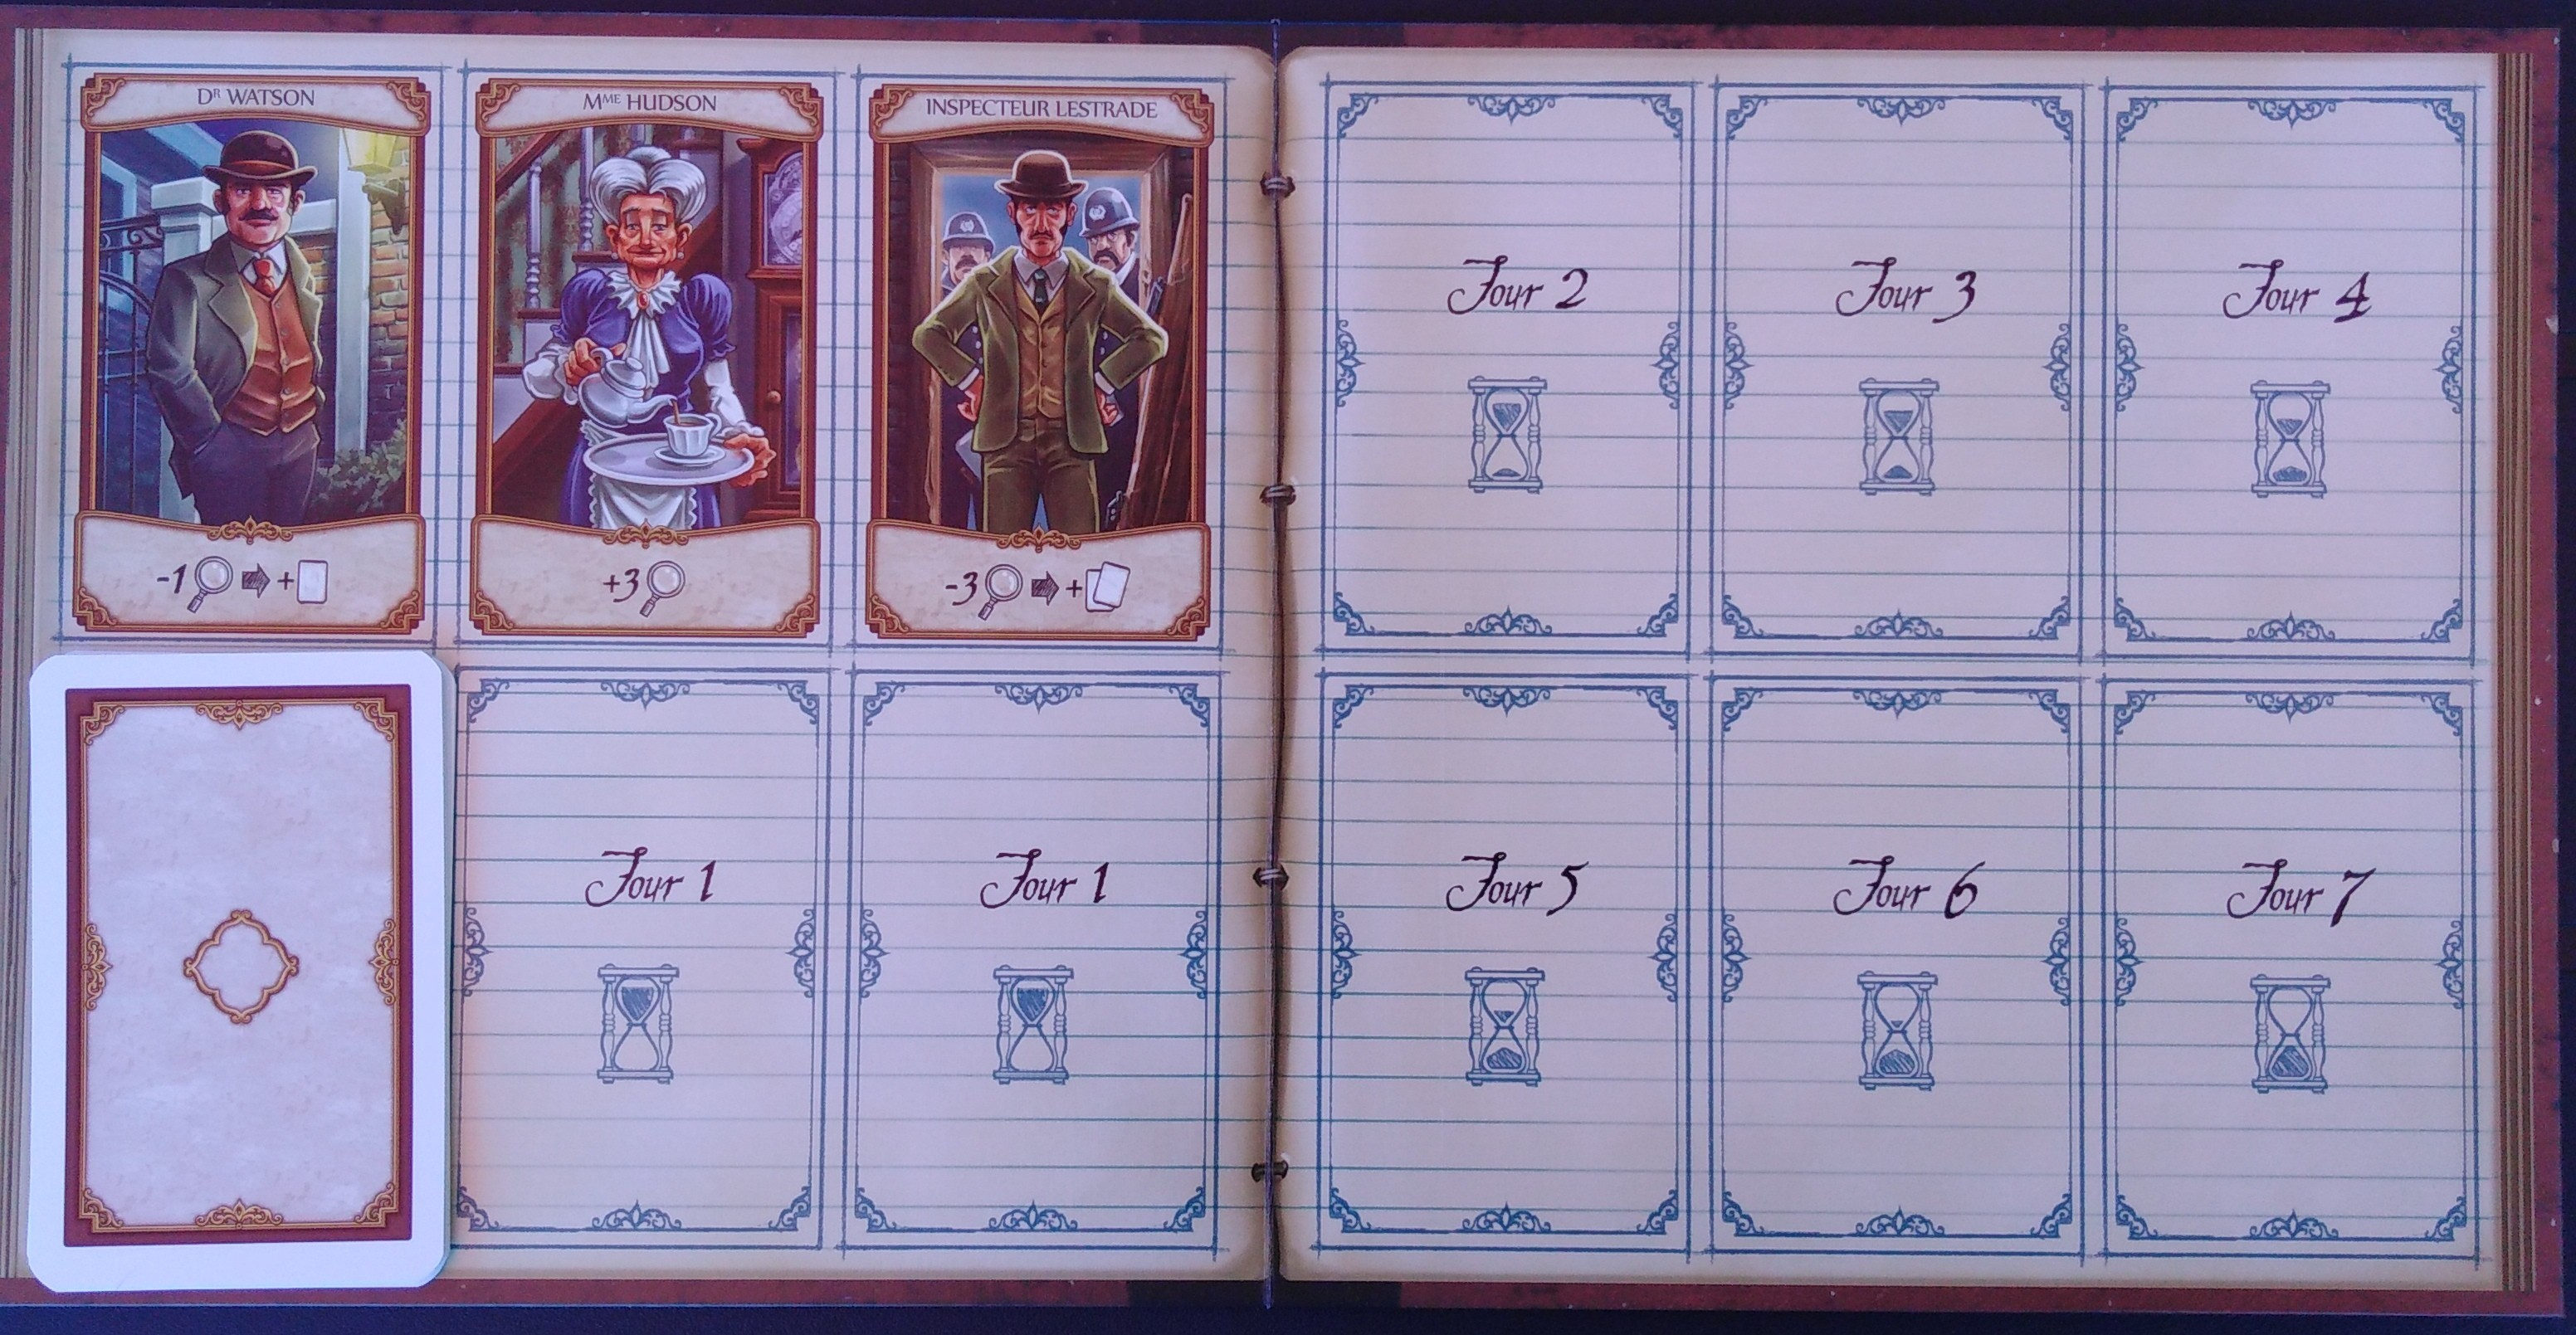 Dᴿ WATSON
Mᴹᴱ HUDSON
INSPECTEUR LESTRADE
-1 +
+3
-3 +
Jour 2
Jour 3
Jour 4
Jour 1
Jour 1
Jour 5
Jour 6
Jour 7